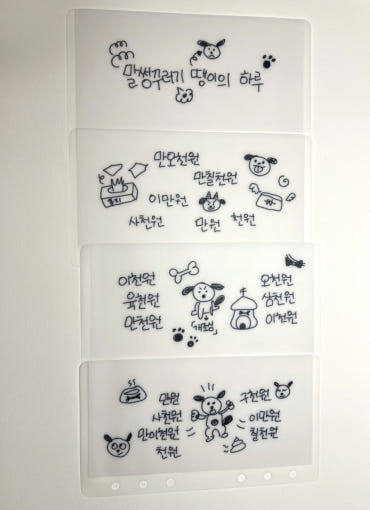 말썽꾸러기 땡이의 하루
만오천원
만칠천원
이만원
휴지
사천원
만원
천원
이천원
육천원
만천원
"개조심"
오천원
삼천원
이천원
만원
사천원
만이천원
천원
구천원
이만원
칠천원